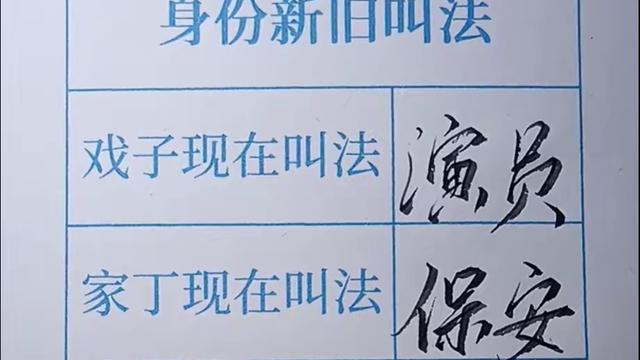 身份新旧叫法
戏子现在叫法 演员
家丁现在叫法 保安